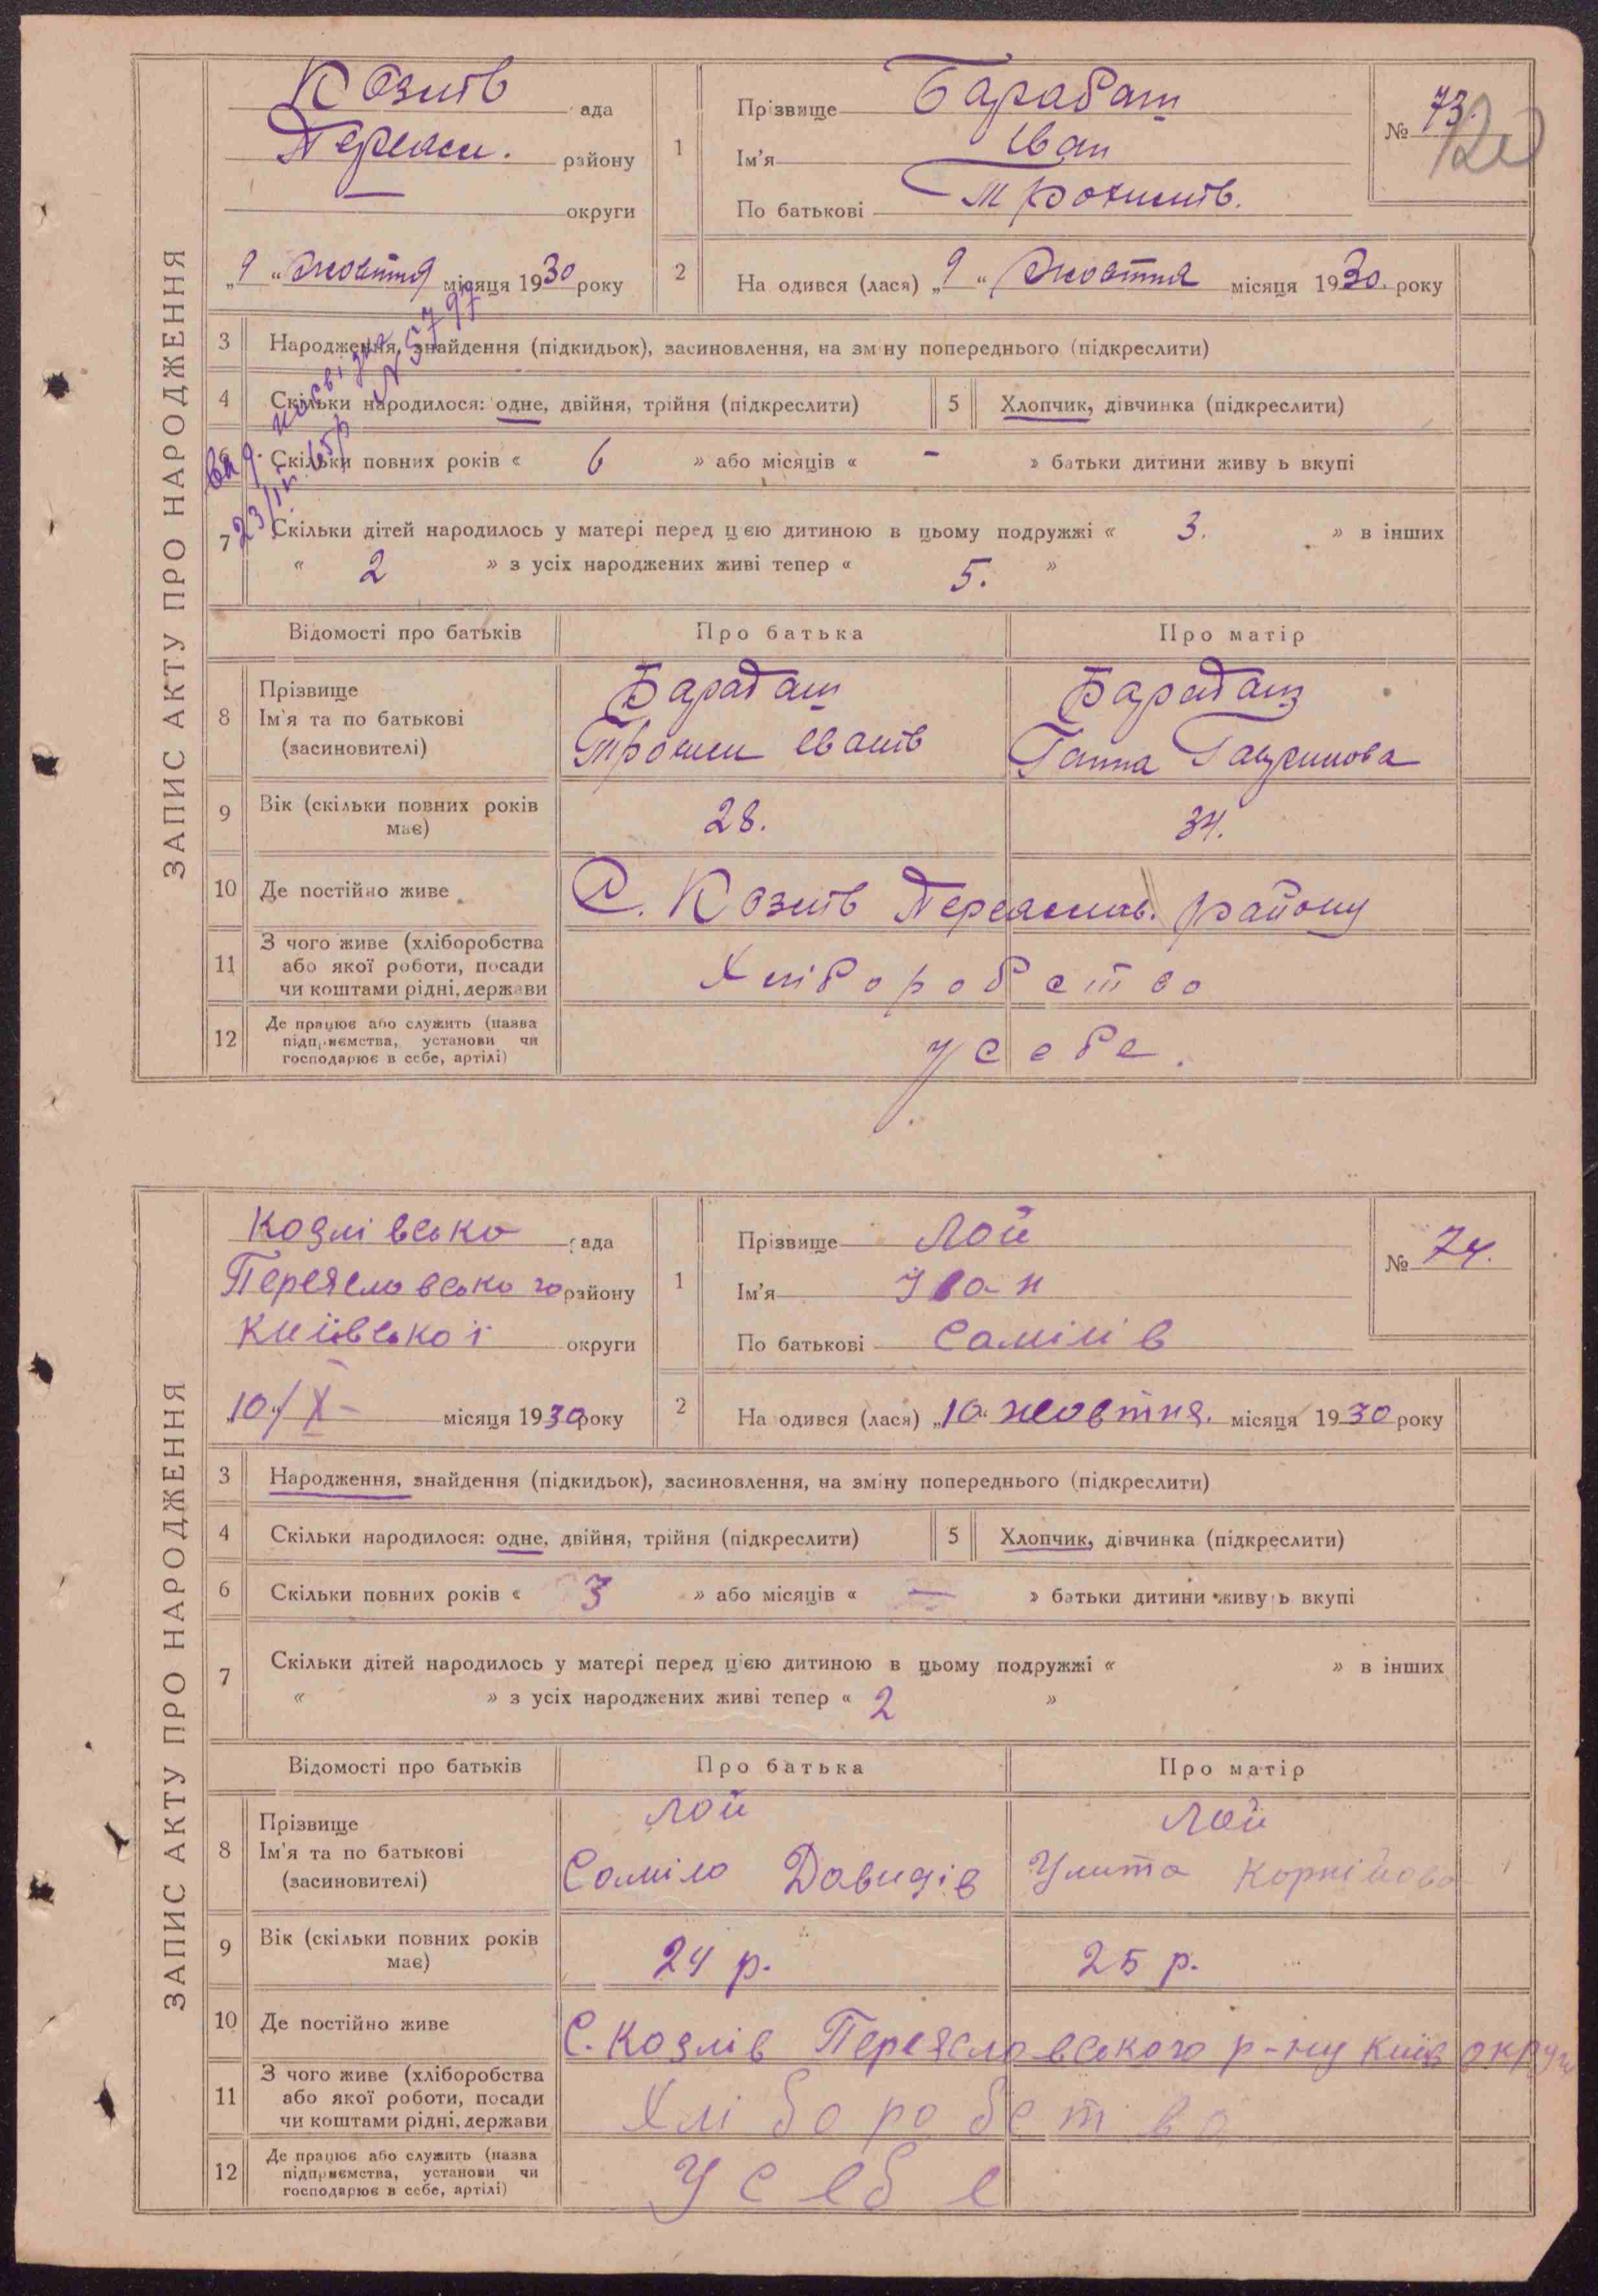 ЗАПИС АКТУ ПРО НАРОДЖЕННЯ
Козлів рада
Переясл. району
округи
„9“ жовтня місяця 1930 року
1
Прізвище Барабаш
Ім'я Іван
По батькові Трохимів.
№ 73.
2
На одився (лася) „9“ жовтня місяця 1930. року
3 Народження, знайдення (підкидьок), засиновлення, на зміну попереднього (підкреслити)
4 Скільки народилося: одне, двійня, трійня (підкреслити)
5 Хлопчик, дівчинка (підкреслити)
6 Скільки повних років « 6 » або місяців « - » батьки дитини живу ь вкупі
7 Скільки дітей народилось у матері перед цією дитиною в цьому подружжі « 3. » в інших
« 2 » з усіх народжених живі тепер « 5. »
№ 5797
Відомості про батьків Про батька Про матір
8 Прізвище
Ім'я та по батькові
(засиновителі)
Барабаш
Трохим Іванів
Барабаш
Ганна
9 Вік (скільки повних років
має)
28. 34.
10 Де постійно живе
С. Козлів Переяслав. району
11 З чого живе (хліборобства
або якої роботи, посади
чи коштами рідні, держави
Хліборобство
12 Де працює або служить (назва
підприємства, установи чи
господарює в себе, артілі)
У себе.
ЗАПИС АКТУ ПРО НАРОДЖЕННЯ
Козлівсько рада
Переяславського району
Київської округи
10/X- місяця 1930 року
1
Прізвище Лой
Ім'я Іван
По батькові Самілів
№ 74.
2
На одився (лася) „10“ жовтня. місяця 1930 року
3 Народження, знайдення (підкидьок), засиновлення, на зміну попереднього (підкреслити)
4 Скільки народилося: одне, двійня, трійня (підкреслити)
5 Хлопчик, дівчинка (підкреслити)
6 Скільки повних років « 3 » або місяців « — » батьки дитини живу ь вкупі
7 Скільки дітей народилось у матері перед цією дитиною в цьому подружжі « » в інших
« » з усіх народжених живі тепер « 2 »
Відомості про батьків Про батька Про матір
8 Прізвище
Ім'я та по батькові
(засиновителі)
Лой
Саміло Давидів
Лой
Улита Корнійова
9 Вік (скільки повних років
має)
24 р. 25 р.
10 Де постійно живе
С. Козлів Переяславського р-ну Київ округи
11 З чого живе (хліборобства
або якої роботи, посади
чи коштами рідні, держави
Хліборобство
12 Де працює або служить (назва
підприємства, установи чи
господарює в себе, артілі)
У себе